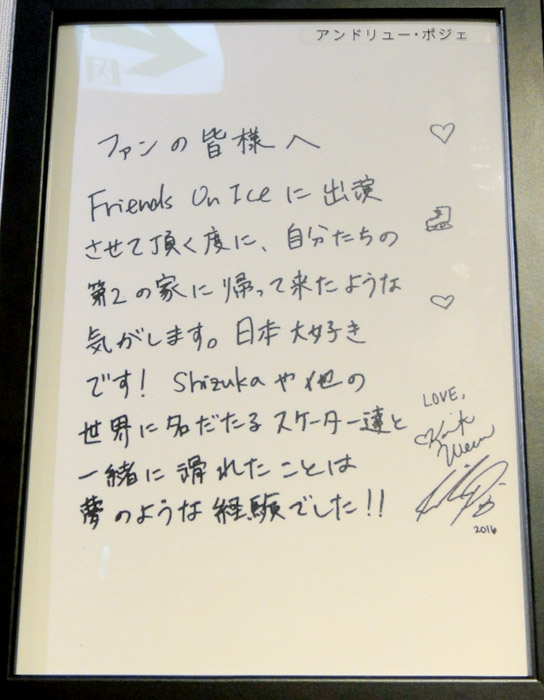 アンドリュー・ポジェ
ファンの皆様へ
Friends On Ice に出演
させて頂く度に、自分たちの
第2の家に帰って来たような
気がします。日本大好き
です! Shizukaや他の
世界に名だたるスケーター達と
一緒に滑れたことは
夢のような経験でした!!
LOVE,
2016